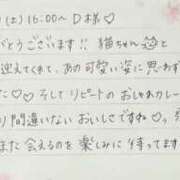 (土) 16:00〜 D様♡
がとうございます!! 猫ちゃん と
迎えてくれて、あの可愛い姿に思わず
た♡♡ そしてリピートのおしゃれカレー
り間違いない おいしさですね♡っ
また会えるのを楽しみに待ってます